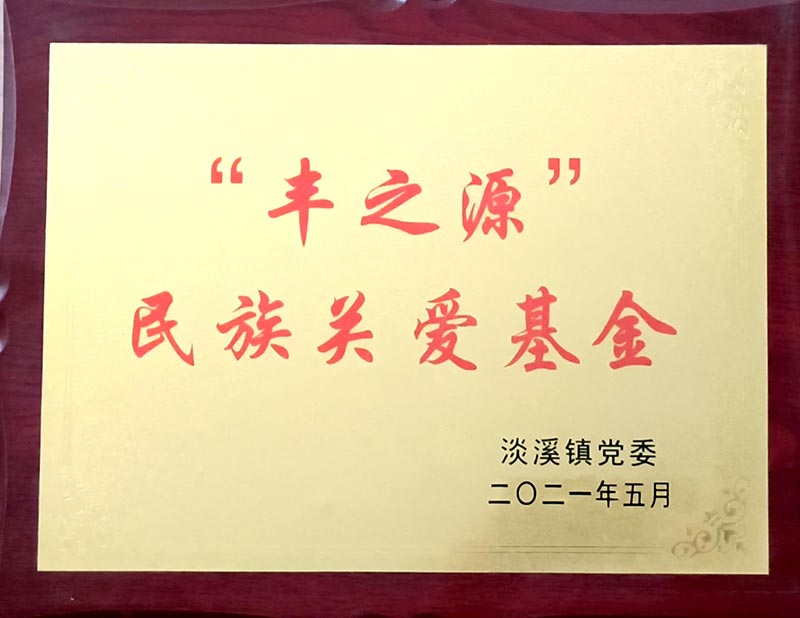 “丰之源”
民族关爱基金
淡溪镇党委
二〇二一年五月